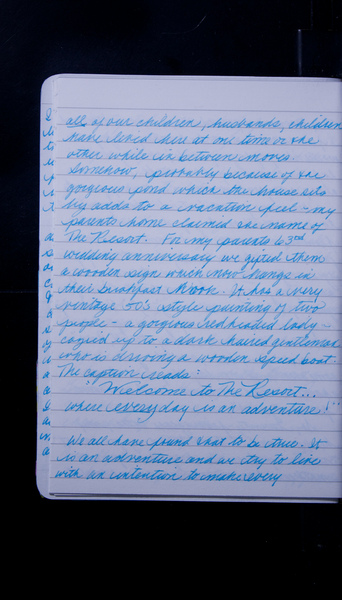 all of our children, husbands, children
have lived here at one time or the
other while in between moves.
Somehow, probably because of the
gorgeous pond which the house sits
by adds to a vacation feel - my
parents home claimed the name of
The Resort. For my parents 63rd
wedding anniversary we gifted them
a wooden sign which now hangs in
their breakfast nook. It has a very
vintage 50's style painting of two
people - a gorgeous red headed lady -
cozied up to a dark haired gentleman
who is driving a wooden speed boat.
The caption reads:
"Welcome to The Resort...
where everyday is an adventure!"
We all have found that to be true. It
is an adventure and we try to live
with an intention to make every